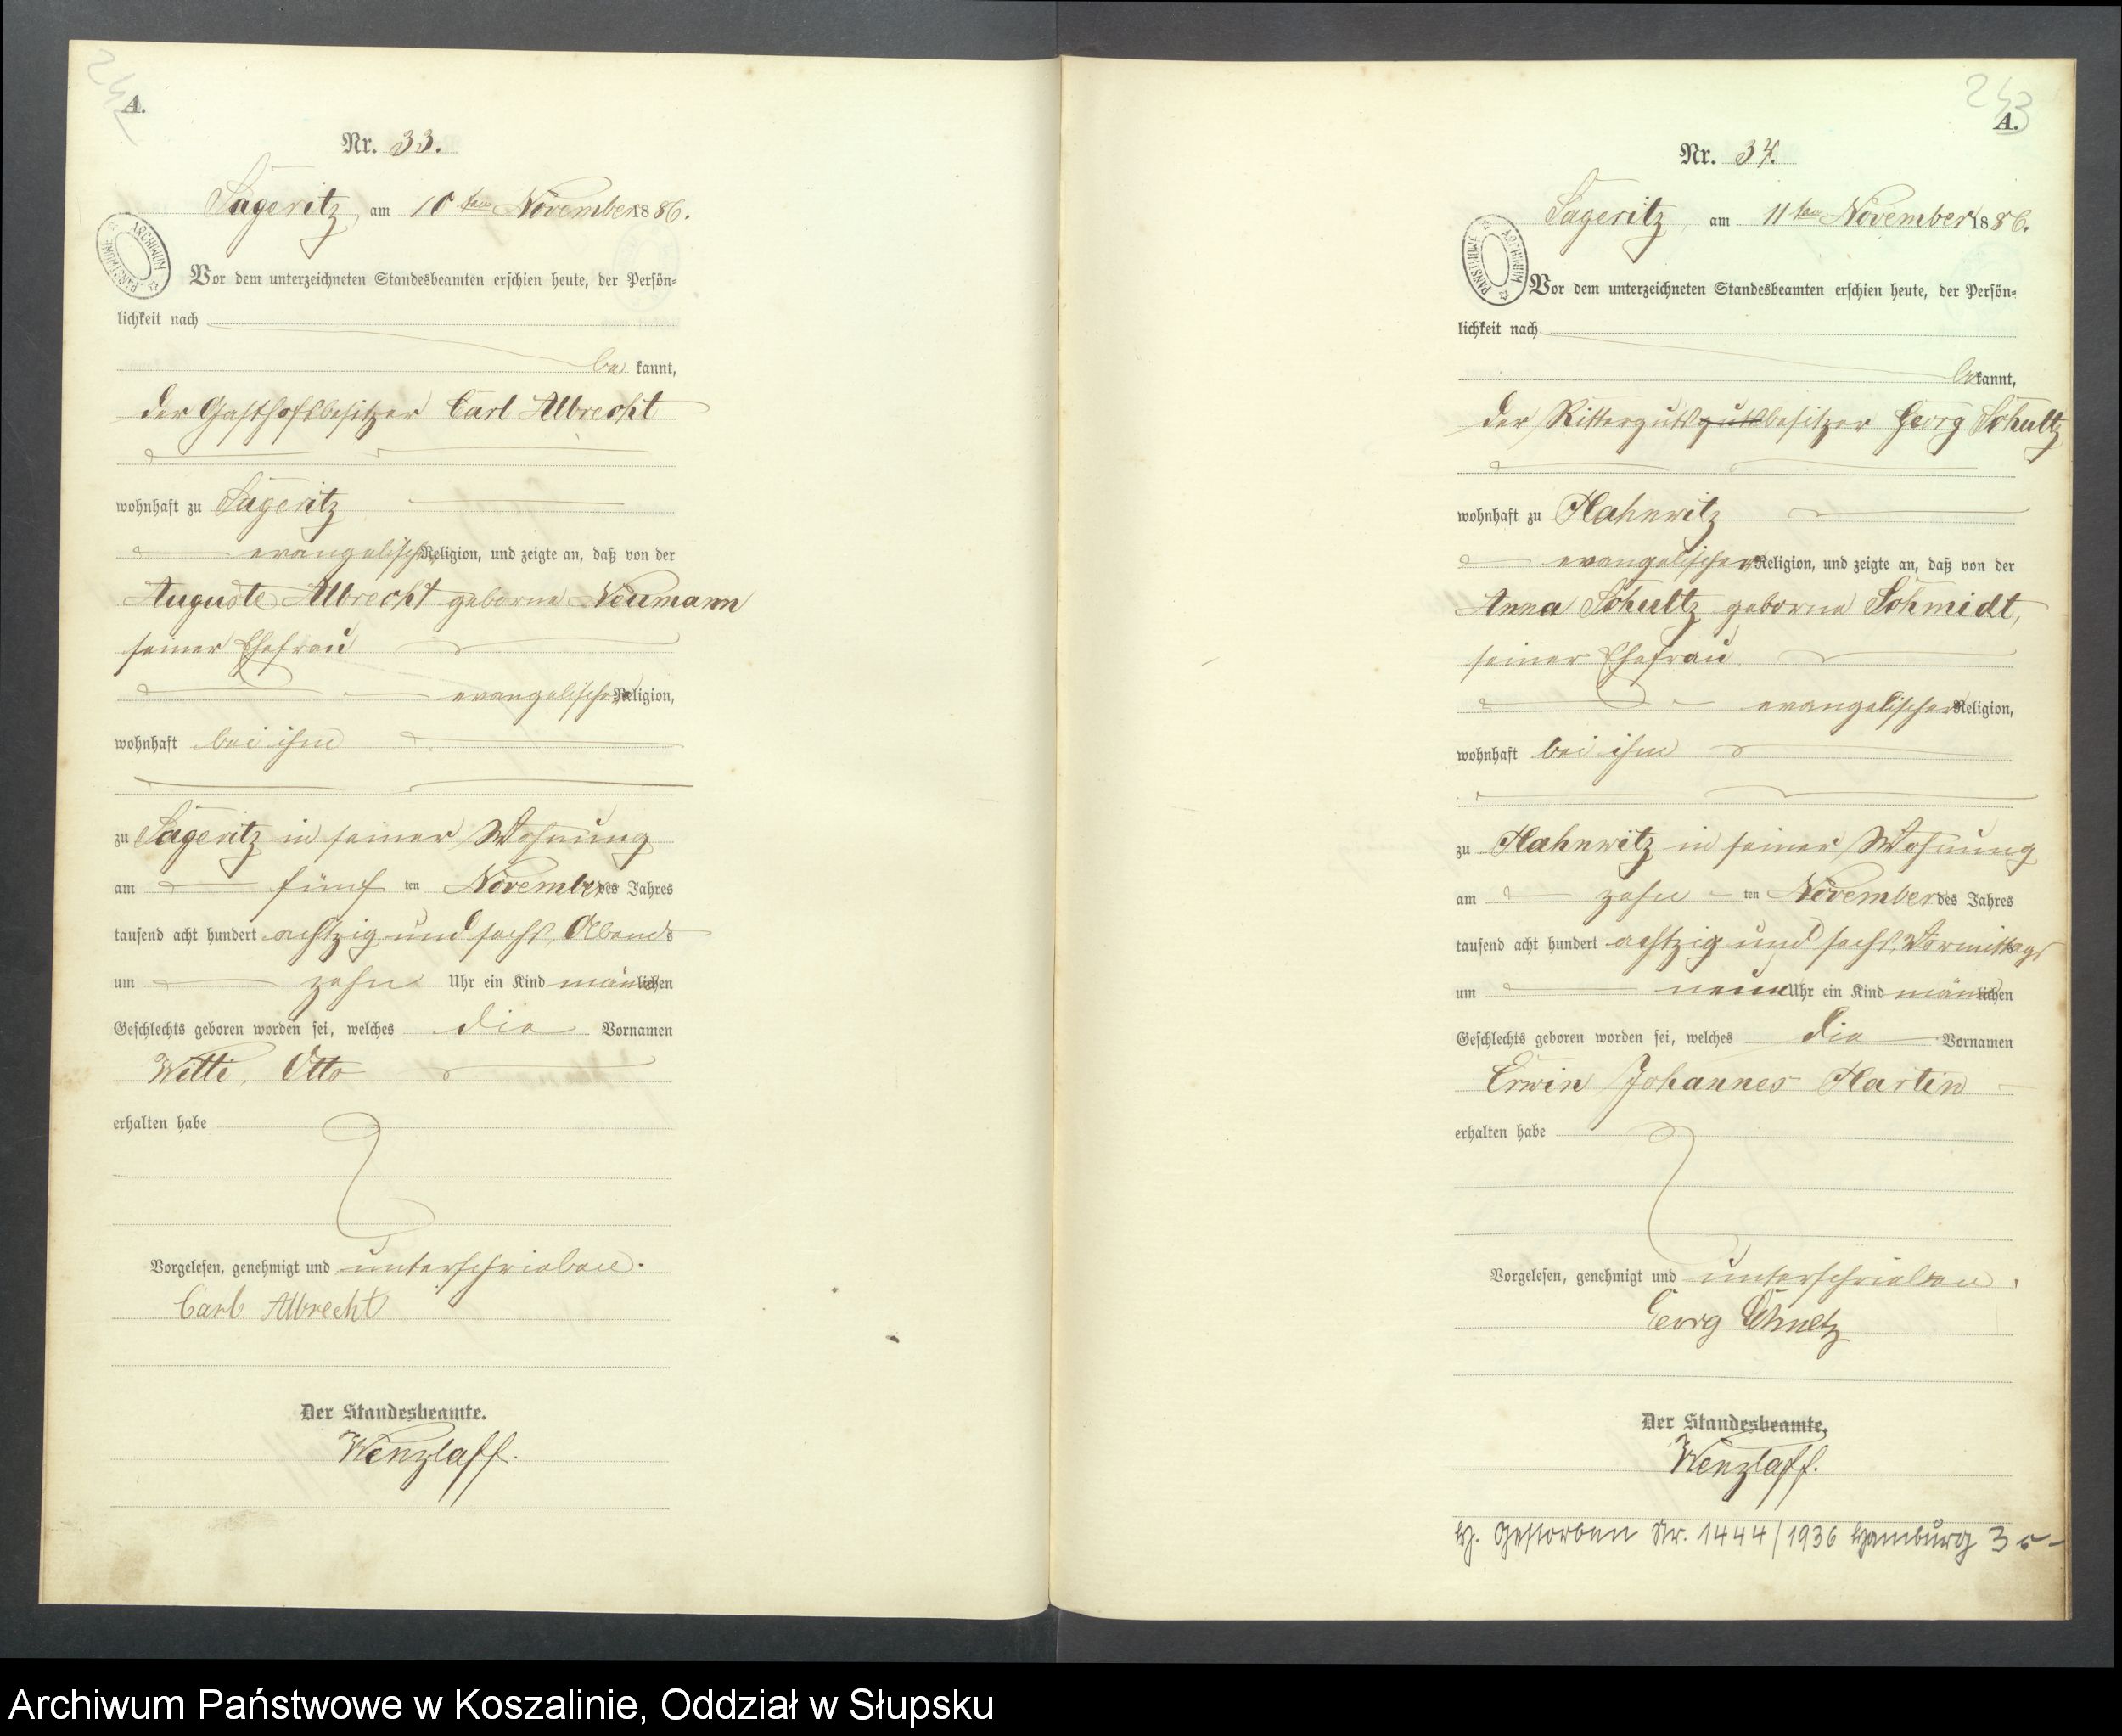 242
A.
Nr. 33.
Sageritz, am 10ten November 1886.
ARCHIWUM PAŃSTWOWE
Vor dem unterzeichneten Standesbeamten erschien heute, der Persön-
lichkeit nach
be kannt,
der Gasthofsbesitzer Carl Albrecht
wohnhaft zu Sageritz
evangelischer Religion, und zeigte an, daß von der
Auguste Albrecht geborne Neumann
seiner Ehefrau
evangelischer Religion,
wohnhaft bei ihm
zu Sageritz in seiner Wohnung
am fünf ten November des Jahres
tausend acht hundert achtzig und sechs, Abends
um zehn Uhr ein Kind männlichen
Geschlechts geboren worden sei, welches die Vornamen
Willi, Otto
erhalten habe
Vorgelesen, genehmigt und unterschrieben.
Carl Albrecht
Der Standesbeamte.
Wenzlaff.
243
A.
Nr. 34.
Sageritz, am 11ten November 1886.
PAŃSTWOWE ARCHIWUM
Vor dem unterzeichneten Standesbeamten erschien heute, der Persön-
lichkeit nach
bekannt,
der Ritterguts guts besitzer Georg Schultz
wohnhaft zu Mahnwitz
evangelischer Religion, und zeigte an, daß von der
Anna Schultz geborne Schmidt,
seiner Ehefrau
evangelischer Religion,
wohnhaft bei ihm
zu Mahnwitz in seiner Wohnung
am zehn ten November des Jahres
tausend acht hundert achtzig und sechs, Vormittags
um neun Uhr ein Kind männlichen
Geschlechts geboren worden sei, welches die Vornamen
Erwin Johannes Martin
erhalten habe
Vorgelesen, genehmigt und unterschrieben.
Georg Schultz
Der Standesbeamte.
Wenzlaff.
H. Gestorben Nr. 1444/1936 Hamburg 3
Archiwum Państwowe w Koszalinie, Oddział w Słupsku